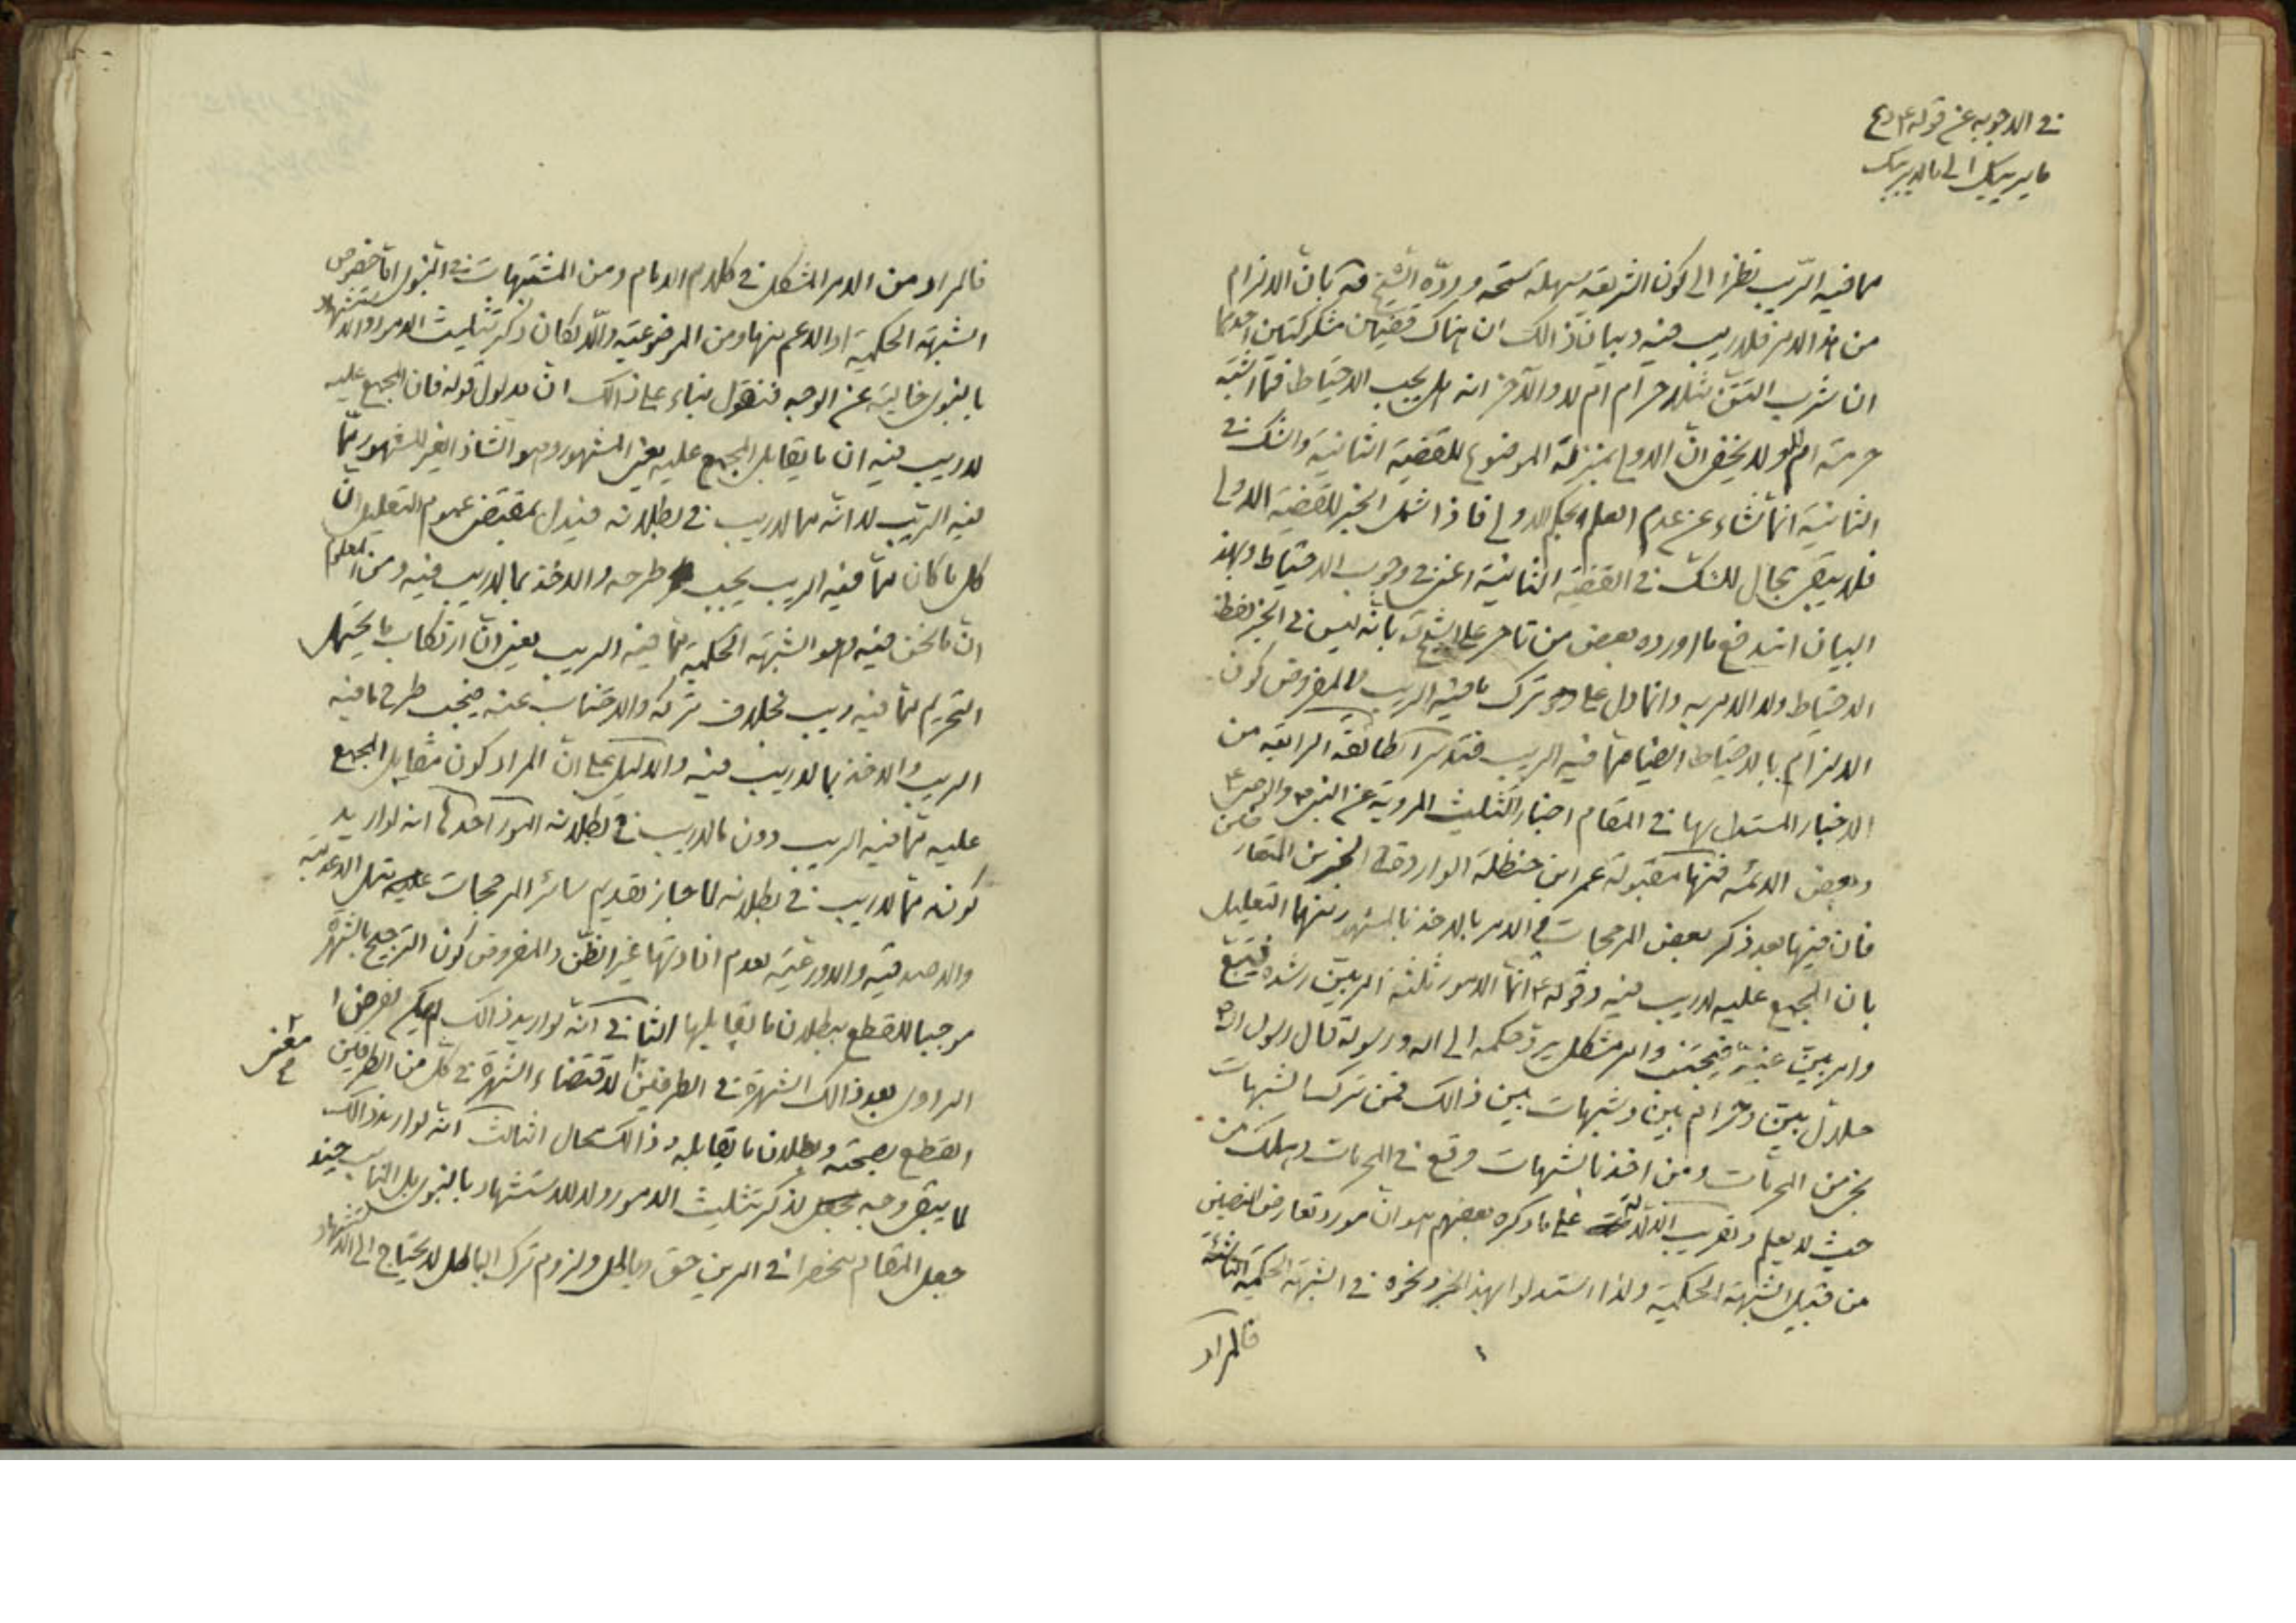 في الاجوبه عن قوله ع دع
ما يريبك الى ما لا يريبك
مما فيه الريب نظرا الى كون الشريعة سهلة سمحة وردّه الشيخ قه بان الالزام
من هذا الامر فلا ريب فيه وبيان ذالك ان هناك قضيتين مشكوكتين احدهما
ان شرب التتن مثلا حرام ام لا والآخر انه هل يجب الاحتياط فما اشتبه
حرمته ام لا ولا يخفى انّ الاولى بمنزلة الموضوع للقضية الثانية والشك في
الثانية انما نشاء عن عدم العلم بحكم الاولى فاذا شمل الخبر للقضية الاولى
فلا يبقى مجال للشك في القضية الثانية اعني في وجوب الاحتياط وبهذ
البيان اندفع ما اورده بعض من تاخر على الشيخ بانه ليس في الخبر لفظ
الاحتياط ولا الامر به وانما دل على ترك ما فيه الريب والمفروض كون
الالزام بالاحتياط ايضا مما فيه الريب فتدبر الطائفة الرابعة من
الاخبار المستدل بها في المقام اخبار التثليث المروية عن النبي ص والوصي ع
وبعض الائمه فمنها مقبولة عمر ابن حنظلة الواردة في الخبرين المتعارضين
فان فيها بعد ذكر بعض المرجحات في الامر بالاخذ بالمشهور منهما التعليل
بان المجمع عليه لا ريب فيه وقوله ع انما الامور ثلثة امر بيّن رشده فيتبع
وامر بيّن غيّه فيجتنب وامر مشكل يرد حكمه الى الله ورسوله قال رسول الله ص
حلال بيّن وحرام بيّن وشبهات بين ذالك فمن ترك الشبهات
نجى من المحرمات ومن اخذ بالشبهات وقع في المحرمات وهلك من
حيث لا يعلم وتقريب الدلالة على ما ذكره بعضهم هو انّ مورد تعارض النصين
من قبيل الشبهة الحكمية ولذا استدلوا بهذا الخبر ونحوه في الشبهة الحكمية الناشئة
فالمراد
فالمراد من الامر المشكل في كلام الامام ومن المشتبهات في النبوي اما خصوص
الشبهة الحكمية او الاعم منها ومن الموضوعية والّا لكان ذكر تثليث الامور والاستشهاد
بالنبوي خالية عن الوجه فنقول بناء على ذالك انّ مدلول قوله فان المجمع عليه
لا ريب فيه ان ما يقابل المجمع عليه يعني المشهور وهو الشاذ الغير المشهور ممّا
فيه الريب لا انّه مما لا ريب في بطلانه فيدل بمقتضى عموم التعليل انّ
كل ما كان ممّا فيه الريب يجب طرحه والاخذ بما لا ريب فيه ومن المعلوم
انّ ما نحن فيه وهو الشبهة الحكمية ممّا فيه الريب يعني انّ ارتكاب ما يحتمل
التحريم ممّا فيه ريب بخلاف تركه والاجتناب عنه فيجب طرح ما فيه
الريب والاخذ بما لا ريب فيه والدليل على انّ المراد كون مقابل المجمع
عليه ممّا فيه الريب دون ما لا ريب في بطلانه امور احدها انه لو اريد
كونه ممّا لا ريب في بطلانه لما جاز تقديم سائر المرجحات عليه مثل الاعدلية
والاصدقية والاورعية لعدم افادتها غير الظنّ والمفروض كون الترجيح بالشهرة
موجبا للقطع ببطلان ما يقابلها الثاني انّه لو اريد ذالك لم يكن لفرض ا
معنى
الراوي بعد ذالك الشهرة في الطرفين لاقتضاء الشهرة في كل من الطرفين
القطع بصحته وبطلان ما يقابله وذالك محال الثالث انّه لو اريد ذالك
لما يبقى وجه لذكر تثليث الامور ولا للاستشهاد بالنبوي بل المناسب حينئذ
جعل المقام منحصرا في امرين حق وباطل ولزوم ترك الباطل لا يحتاج الى الاستشهاد